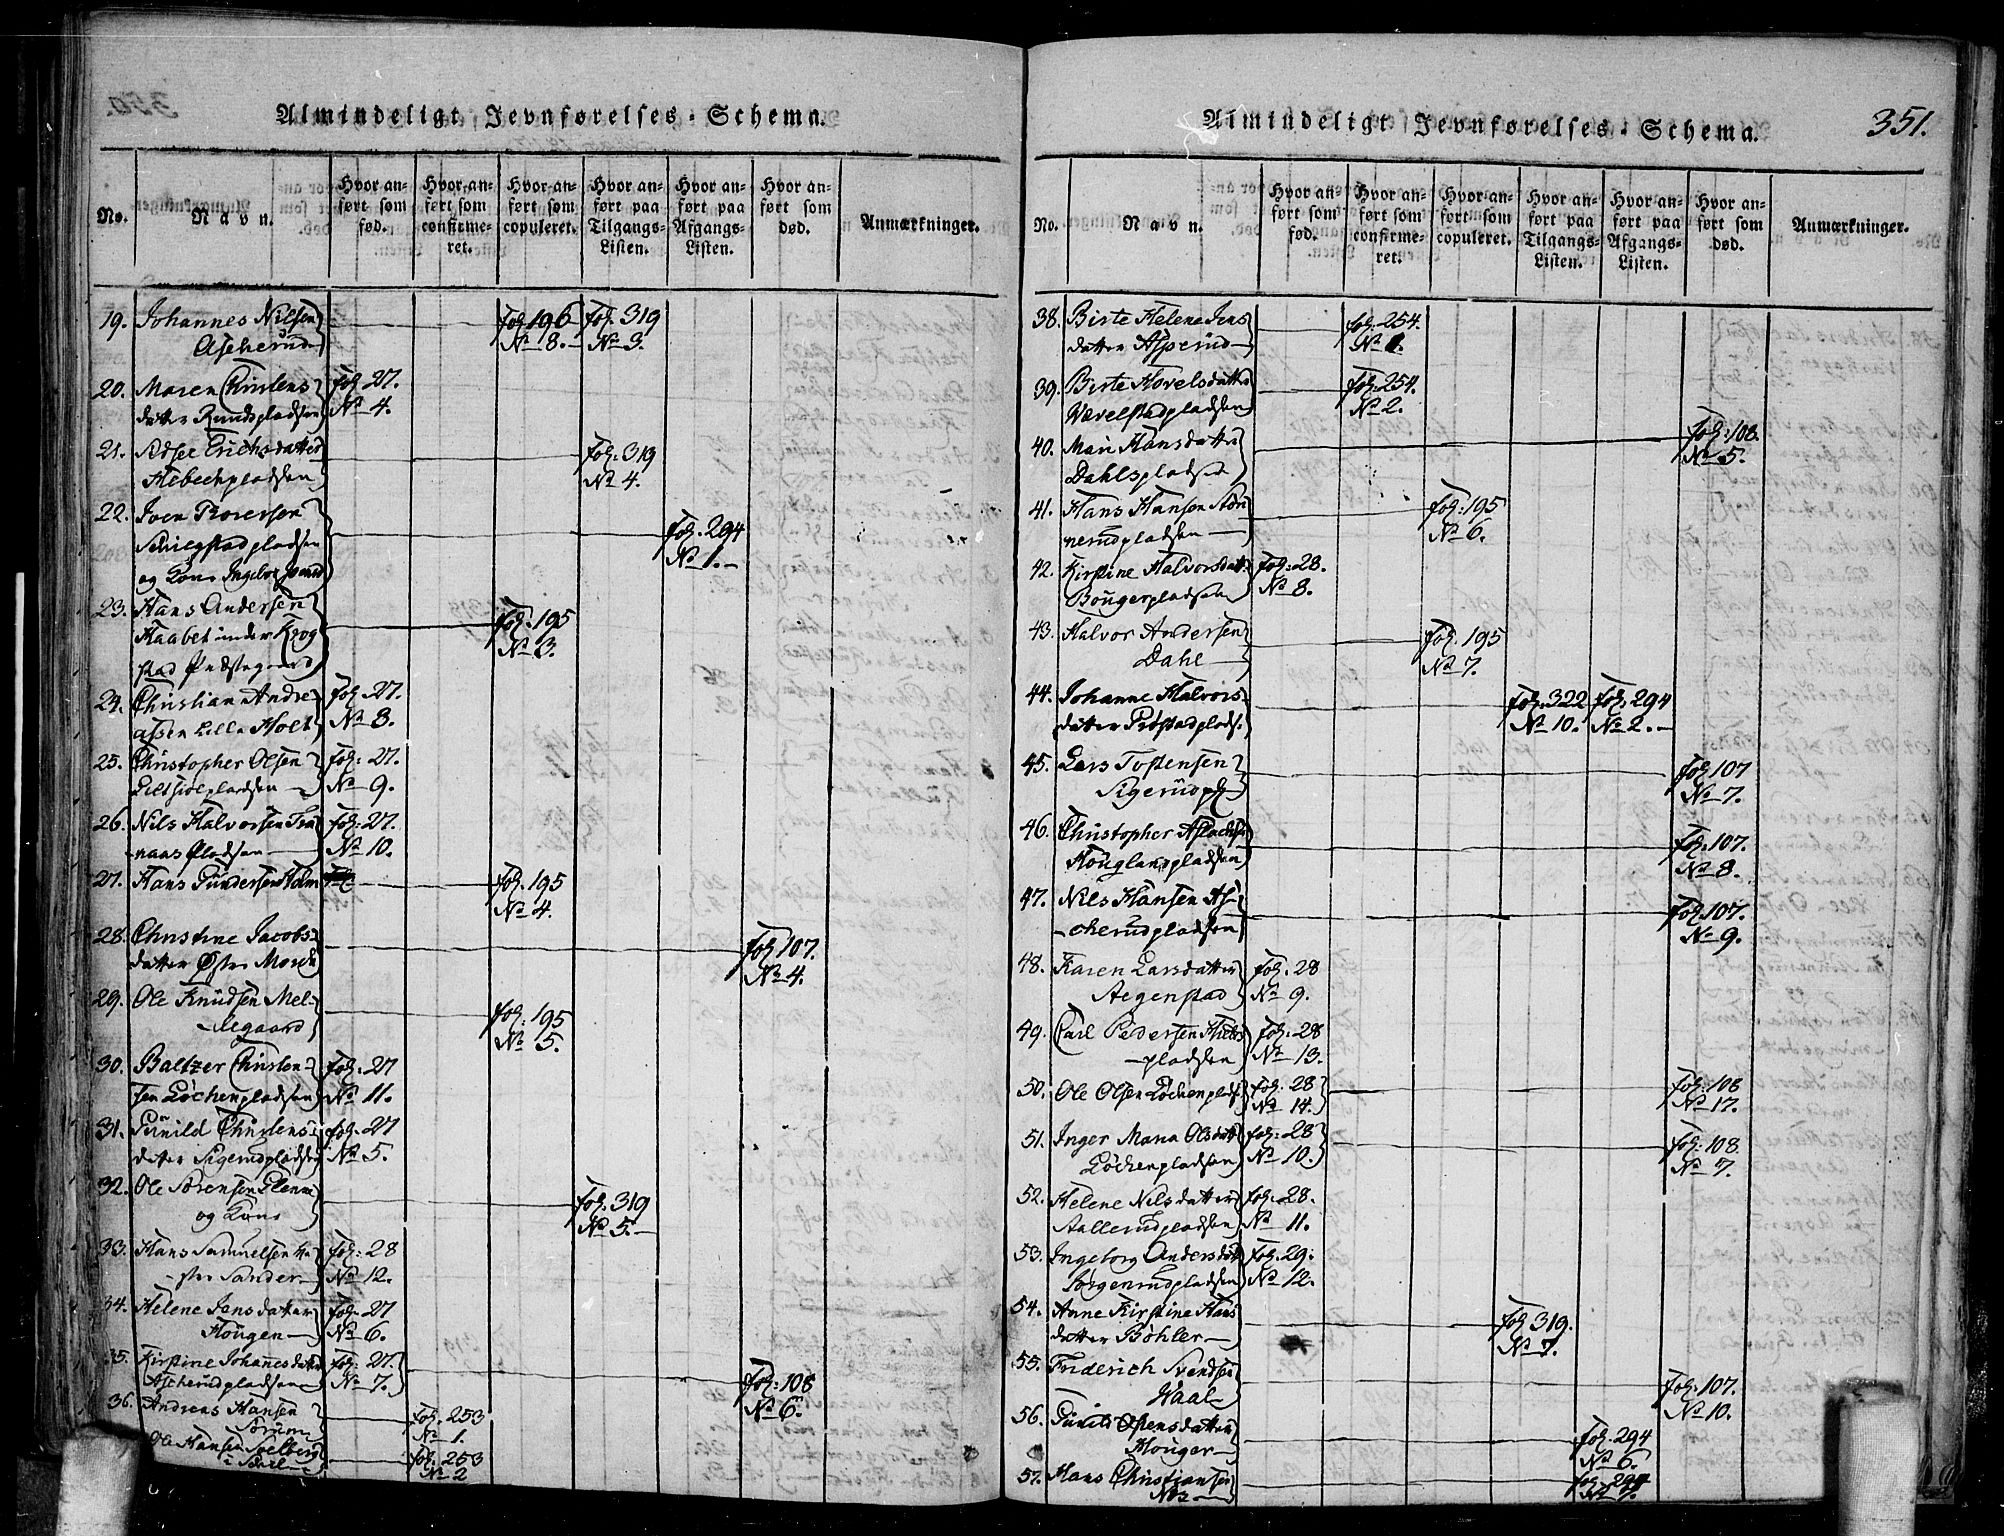 Almindeligt Jevnførelses-Schema.
No.
Navn.
Hvor anført som fød.
Hvor anført som confirmeret.
Hvor anført som copuleret.
Hvor anført paa Tilgangs-Listen.
Hvor anført paa Afgangs-Listen.
Hvor anført som død.
Anmærkninger.
19. Johannes Nilsen fol. 196 fol. 319
Ascherud No 8. No 3.
20. Maren Christens fol. 27.
datter Rundspladsen No 4.
21. Erichsdatter fol: 319
Hebechpladsen No 4.
22. Iven
pladsen fol. 294
og Kone Ingebor No 1.
23. Hans Andersen fol: 195
Haabet under Krog No 3.
stad Præstegaard
24. Christian Andre fol. 27.
assen Lille Holt No 8.
25. Christopher Olsen fol: 27.
pladsen No 9.
26. Nils Halvorsen fol: 27.
naas Pladsen No 10.
27. Hans Gundersen Holm fol: 195
No 4.
28. Christine Jacobs fol. 107.
datter Østre No 4.
29. Ole Knudsen Mel- fol: 195
legaard No 5.
30. Baltzer Christen- fol. 27
sen Løchenpladsen No 11.
31. Gunild Christens fol. 27
datter Sigerudpladsen No 5.
32. Ole Sørensen Glenne fol. 319
og Kone No 5.
33. Hans Samuelsen fol. 28
Sander No 12.
34. Helene Jensdatter fol. 27
Hougen No 6.
35. Kirstine Johannesdatter fol: 27. fol: 108
Ascherudpladsen No 7. No 6.
36. Andreas Hansen fol. 253
Sørum No 1.
Ole Hansen fol. 253
No 2
Almindeligt Jevnførelses-Schema. 351.
No.
Navn.
Hvor anført som fød.
Hvor anført som confirmeret.
Hvor anført som copuleret.
Hvor anført paa Tilgangs-Listen.
Hvor anført paa Afgangs-Listen.
Hvor anført som død.
Anmærkninger.
38. Birte Helene Jens fol: 254.
datter Asperud No 1.
39. Birte Hovelsdatter fol: 254.
Wevelstadpladsen No 2.
40. Mari Hansdatter fol. 108.
Dahlspladsen No 5.
41. Hans Hansen fol: 195
nerudpladsen No 6.
42. Kirstine Halvorsdatt. fol: 28.
Bougerpladsen No 8.
43. Halvor Andersen fol. 195
Dahl No 7.
44. Johanne Halvors fol. 322 fol. 294
datter No 10. No 2.
45. Lars Tostensen fol. 107
Sigerudpl No 7.
46. Christopher fol. 107.
Houglandpladsen No 8.
47. Nils Hansen As- fol. 107.
cherudpladsen No 9.
48. Karen Larsdatter fol. 28
Aegenstad No 9.
49. Carl Pedersen fol: 28
pladsen No 13.
50. Ole Olsen Løchenplads. fol. 28 fol: 108
No 14. No 17.
51. Inger Maria Olsdatt fol: 28 fol. 108.
Løchenpladsen No 10. No 7.
52. Helene Nilsdatter fol: 28.
Aallerudpladsen No 11.
53. Ingeborg Andersdatt fol. 29.
Sørgenrudpladsen No 12.
54. Anne Kirstine Hans fol 319.
datter Bøhler No 7.
55. Friderich Svendsen fol: 107.
Waal No 10.
56. Gunild Olsensdatter fol. 294
Houger No 6.
57. Hans Christiansen fol. 294
Næs No 7.